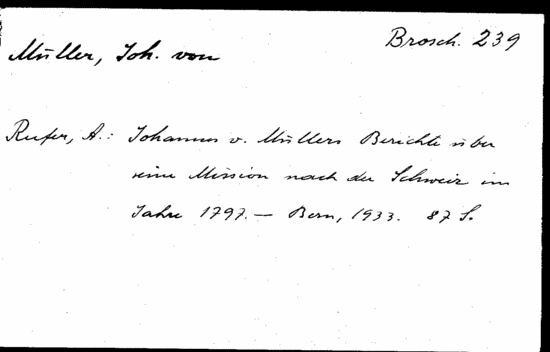 Brosch. 239
Müller, Joh. von
Rufer, A.: Johannes v. Müllers Berichte über
seine Mission nach der Schweiz im
Jahre 1797. — Bern, 1933. 87 S.